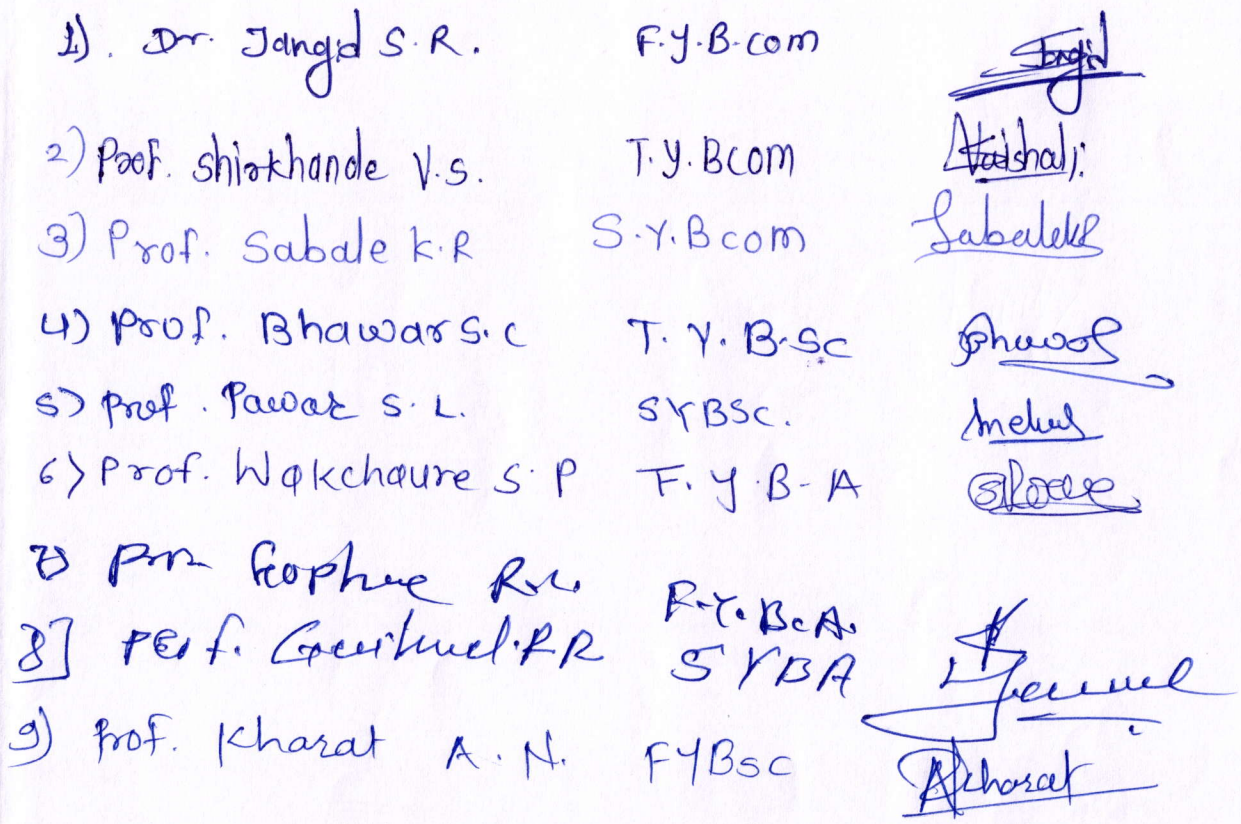 1). Dr. Jangid S.R. F.Y.B.com Jangid
2) Prof. Shirkhande V.S. T.Y.Bcom Vaishali.
3) Prof. Sabale K.R S.Y.Bcom SabaleKR
4) Prof. Bhawar S.C T.Y.B.Sc
5) Prof. Pawar S.L. SYBSC.
6) Prof. Wakchaure S.P F.Y.B-A
7) R.
F.Y.BcA.
8] Prof. R.R SYBA
9) Prof. Kharat A.N. FYBSC AKharat